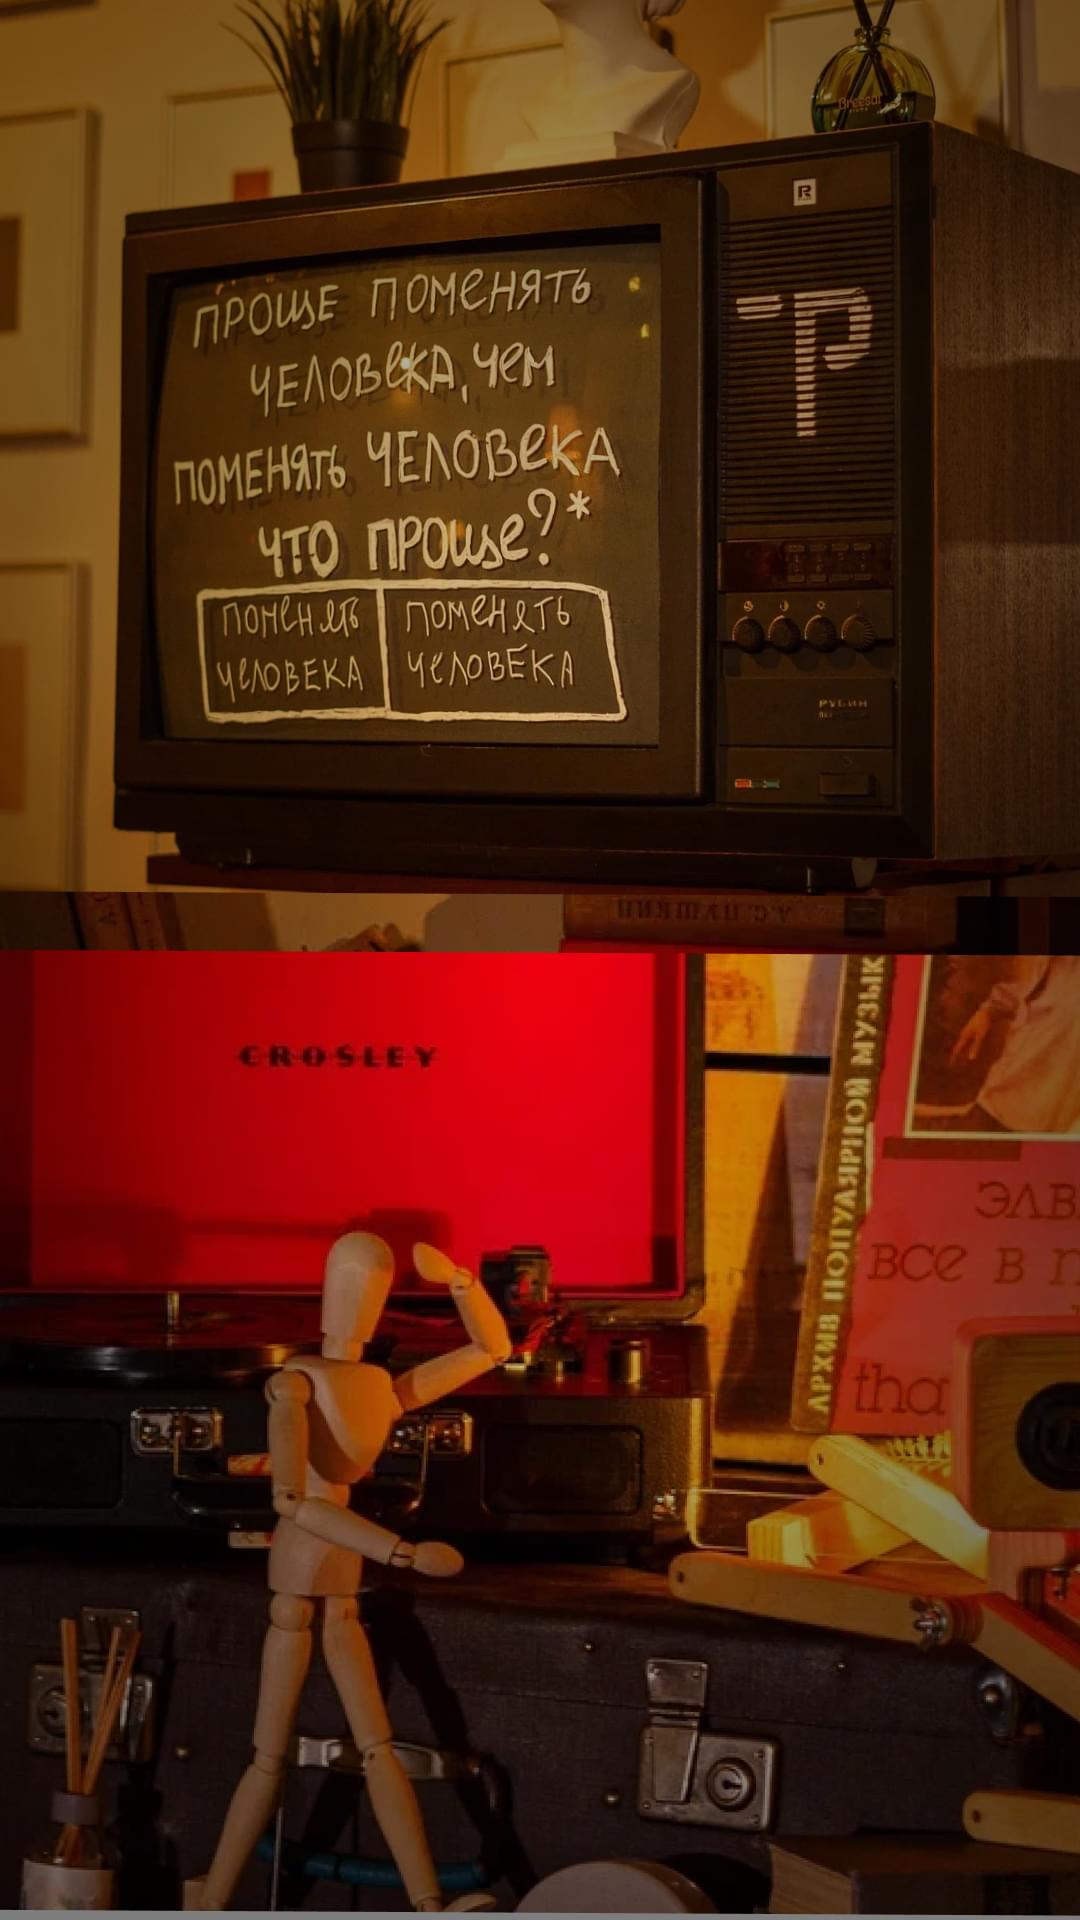 Breesal
R
ПРОЩЕ ПОМЕНЯТЬ
ЧЕЛОВЕКА, ЧЕМ
ПОМЕНЯТЬ ЧЕЛОВЕКА
ЧТО ПРОЩЕ?*
ПОМЕНЯТЬ
ЧЕЛОВЕКА
ПОМЕНЯТЬ
ЧЕЛОВЕКА
Р
РУБИН
А.С. ПУШКИН
CROSLEY
АРХИВ ПОПУЛЯРНОЙ МУЗЫК
ЭЛВ
все в п
tha